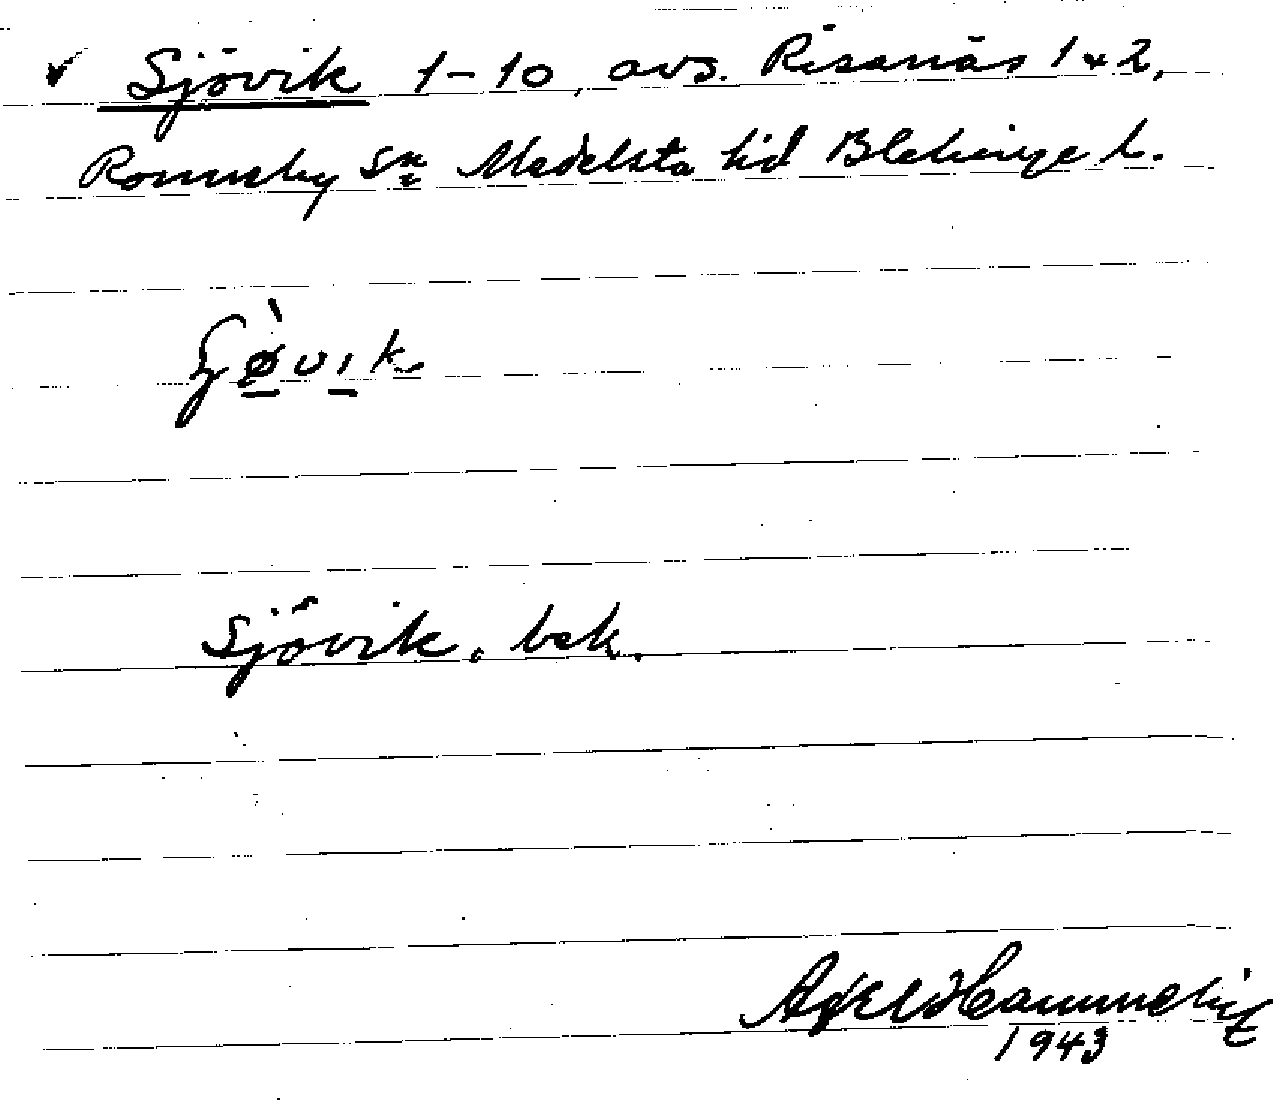 ✓ Sjövik 1-10, avs. Risanäs 1 & 2,
Ronneby Sn Medelsta hd Blekinge l.
Sjövik. bek.
1943